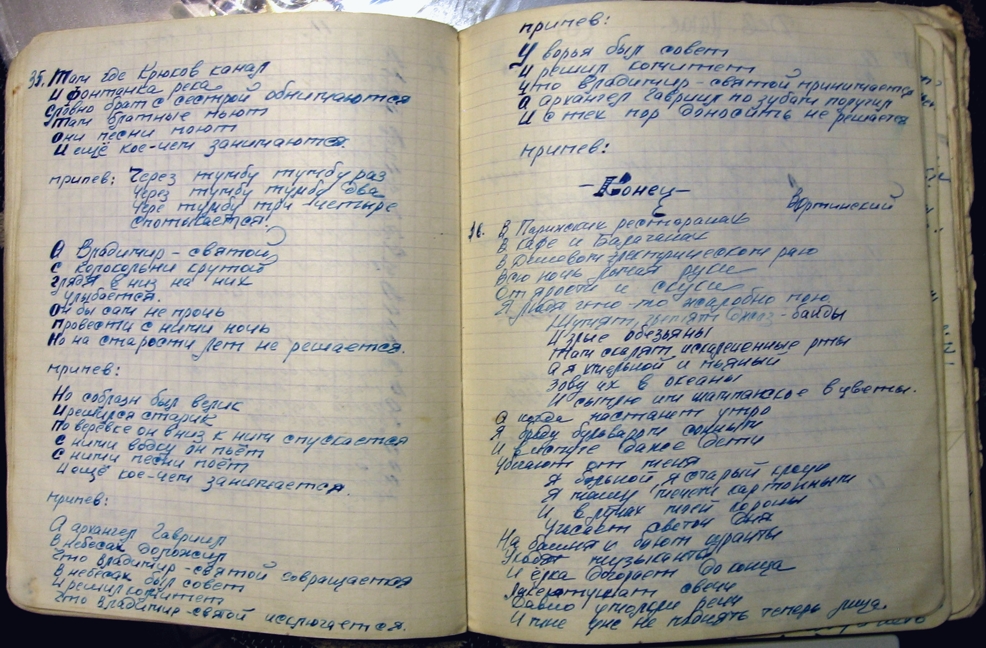 35. Там где Крюков канал
И Фонтанка река
Словно брат с сестрой обнимаются
Там блатные пьют
Они песни поют
И ещё кое-чем занимаются.
припев: Через тумбу тумбу раз
Через тумбу тумбу два
Чере тумбу три - четыре
спотыкается!
А Владимир - святой
С колокольни крутой
глядя в низ на них
улыбается.
Он бы сам не прочь
провести с ними ночь
Но на старости лет не решается.
припев:
Но соблазн был велик
И решился старик
По верёвке он вниз к ним спускается
С ними водку он пьёт
С ними песни поёт
И ещё кое-чем занимается.
припев:
А архангел Гавриил
В небесах доложил
Что Владимир - святой
В небесах был совет
И решил комитет
Что Владимир - святой исключается.
припев:
У ворья был совет
И решил комитет
Что Владимир - святой принимается
А архангел Гавриил по зубам получил
И с тех пор доносить не решается
припев:
-Конец-
Вертинский
36. В Парижских ресторанах
В кафе и балаганах
В Дешевом электрическом раю
Всю ночь ломая руки
От ярости и скуки
Я людям что-то жалобно пою
Шумят джаз-банды
И злые обезьяны
Там скалят искалеченные рты
А я и пьяный
Зову их в океаны
И сыплю им шампанское в цветы.
А когда настанет утро
Я бреду бульваром сонным
И в испуге даже дети
Убегают от меня
Я больной я старый клоун
Я машу мечем картонным
И в лучах моей короны
Угасает светоч дня
На башне бьют куранты
Уходят музыканты
И ёлка догорает до конца
свечи
Давно умолкли речи
И мне уже не поднять теперь лица.